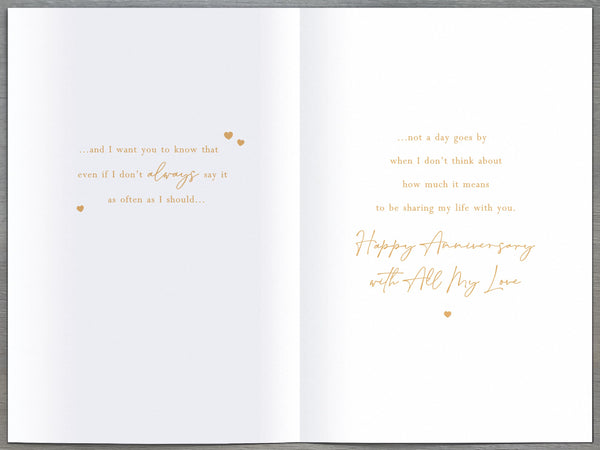 ...and I want you to know that
even if I don't always say it
as often as I should...
...not a day goes by
when I don't think about
how much it means
to be sharing my life with you.
Happy Anniversary
with All My Love